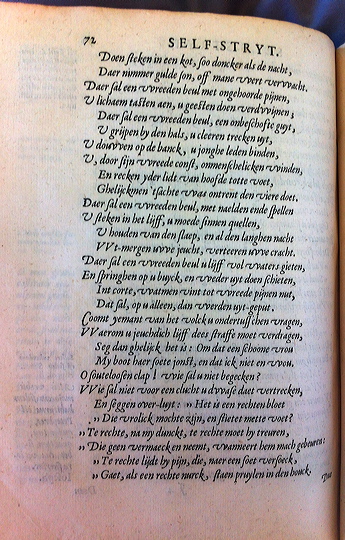 72 SELF-STRYT.
Doen steken in een kot, soo doncker als de nacht,
Daer nimmer gulde son, off mane wert verwacht.
Daer sal een wreeden beul met ongehoorde pijnen,
V lichaem tasten aen, u geesten doen verdwijnen;
Daer sal een wreeden beul, een onbeschofte guyt,
V grijpen by den hals, u cleeren trecken uyt,
V douwen op de banck, u jonghe leden binden,
V, door sijn wreede const, onmenschelicken winden,
En recken yder lidt van hoofde totte voet,
Ghelijckmen 'tsachte was ontrent den viere doet.
Daer sal een wreeden beul, met naelden ende spellen
V steken in het lijff, u moede sinnen quellen,
V houden van den slaep, en al den langhen nacht
VVt-mergen uwe jeucht, verteeren uwe cracht.
Daer sal een wreeden beul u lijff vol waters gieten,
En springhen op u buyck, en weder uyt doen schieten,
Int corte, watmen vint tot wreede pijnen nut,
Dat sal, op u alleen, dan werden uyt-geput.
Coomt yemant van het volck u ondertusschen vragen,
VVaerom u jeuchdich lijff dees straffe moet verdragen,
Seg dan ghelijck het is: Om dat een schoone vrou
My boot haer soete jonst, en dat ick niet en wou.
O souteloosen clap! wie sal u niet begecken?
VVie sal niet voor een clucht u dwase daet vertrecken,
En seggen over-luyt: „ Het is een rechten bloet
„ Die vrolick mochte zijn, en stietet mette voet?
„ Te rechte, na my dunckt, te rechte moet hy treuren,
„ Die geen vermaeck en neemt, wanneert hem mach gebeuren:
„ Te rechte lijdt hy pijn, die, naer een soet versoeck,
„ Gaet, als een rechte nurck, staen pruylen in den houck.